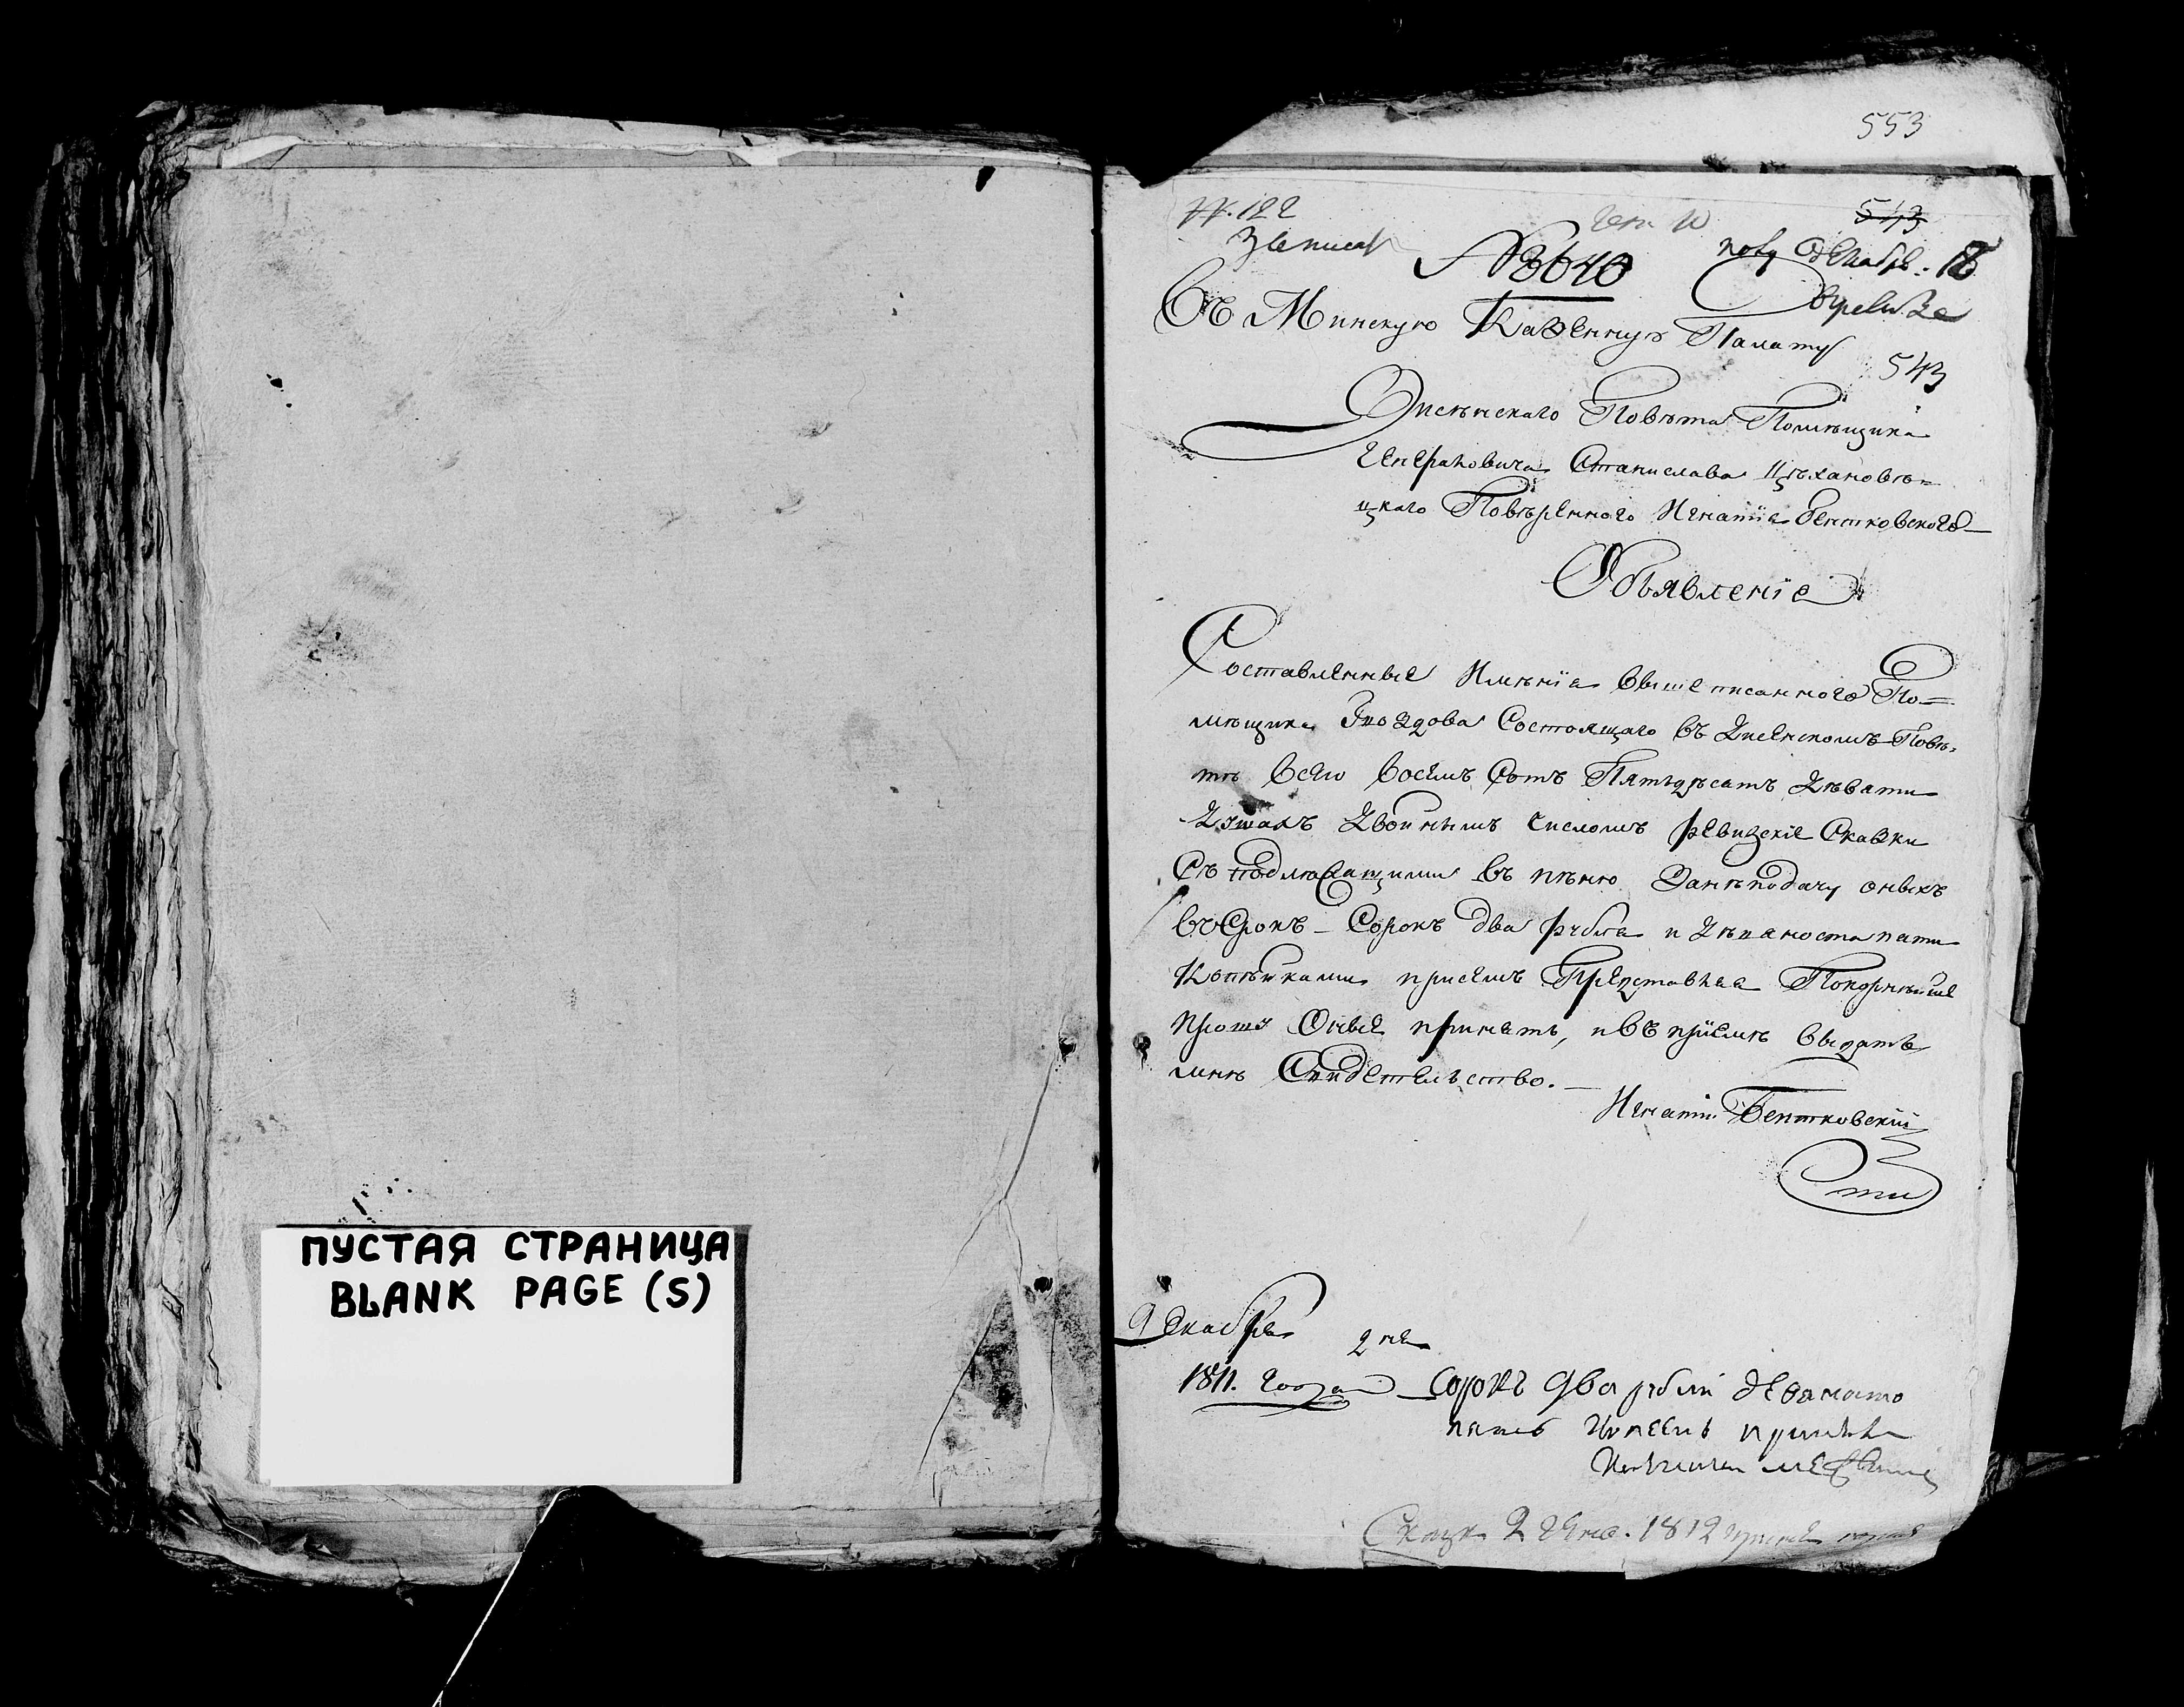 ПУСТАЯ СТРАНИЦА
BLANK PAGE (S)
553
543
№ 3640
Въ Минскую Казенную Палату
543
Дисенскаго Повѣта Помѣщика
Генераловича Станислава Цѣхановѣ=
цкаго Повѣренного Игнатія Бентковского
Объявленіе
Составленные Имѣнія вышеписанного По=
мѣщика Гноздова Состоящаго въ Дисенскомъ Повѣ-
тѣ Всего Восемъ Сотъ Пятьдѣсатъ Дѣвати
Душахъ Двойнымъ Числомъ ревизскіе Сказки
Съ подлюжащими въ пѣню Занѣподачу оныхъ
въ Срокъ – Сорокъ два рубля и Дѣваноста пати
Копѣйками присемъ Представляя Покорнѣйше
прошу Оные принять, и въ пріемѣ выдать
мнѣ Свидетельство. –
Игнатій Бентковскій
Декабря дня
1811. года Сорокъ два рубли девяносто
пять копеекъ принялъ
1812